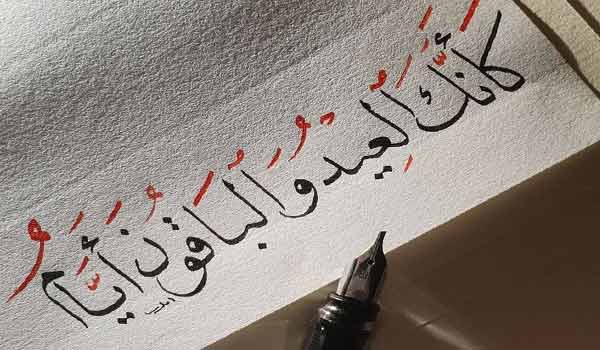 كَأَنَّكَ الْعِيدُ وَالْبَاقُونَ أَيَّامُ